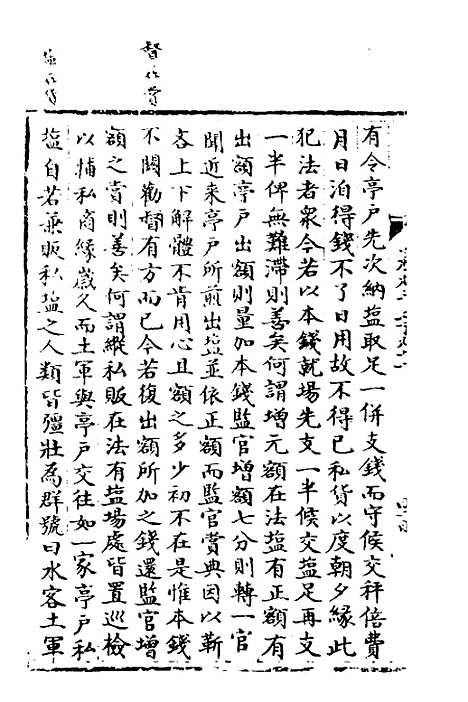 有令亭戶先次納塩取足一併支錢而守候交秤倍費
月日泊得錢不了日用故不得已私貨以度朝夕緣此
犯法者衆今若以本錢就場先支一半候交塩足再支
一半俾無難滯則善矣何謂增元額在法塩有正額有
出額亭戶出額則量加本錢監官增額七分則轉一官
聞近來亭戶所煎出塩並依正額而監官賞典因以靳
吝上下解體不肯用心且額之多少初不在是惟本錢
不闕勸督有方而已今若復出額所加之錢還監官增
額之賞則善矣何謂縱私販在法有塩場處皆置巡檢
以捕私商緣歲久而土軍與亭戶交往如一家亭戶私
塩自若兼販私塩之人類皆彊壯為群號曰水客土軍
督作嘗
塩作